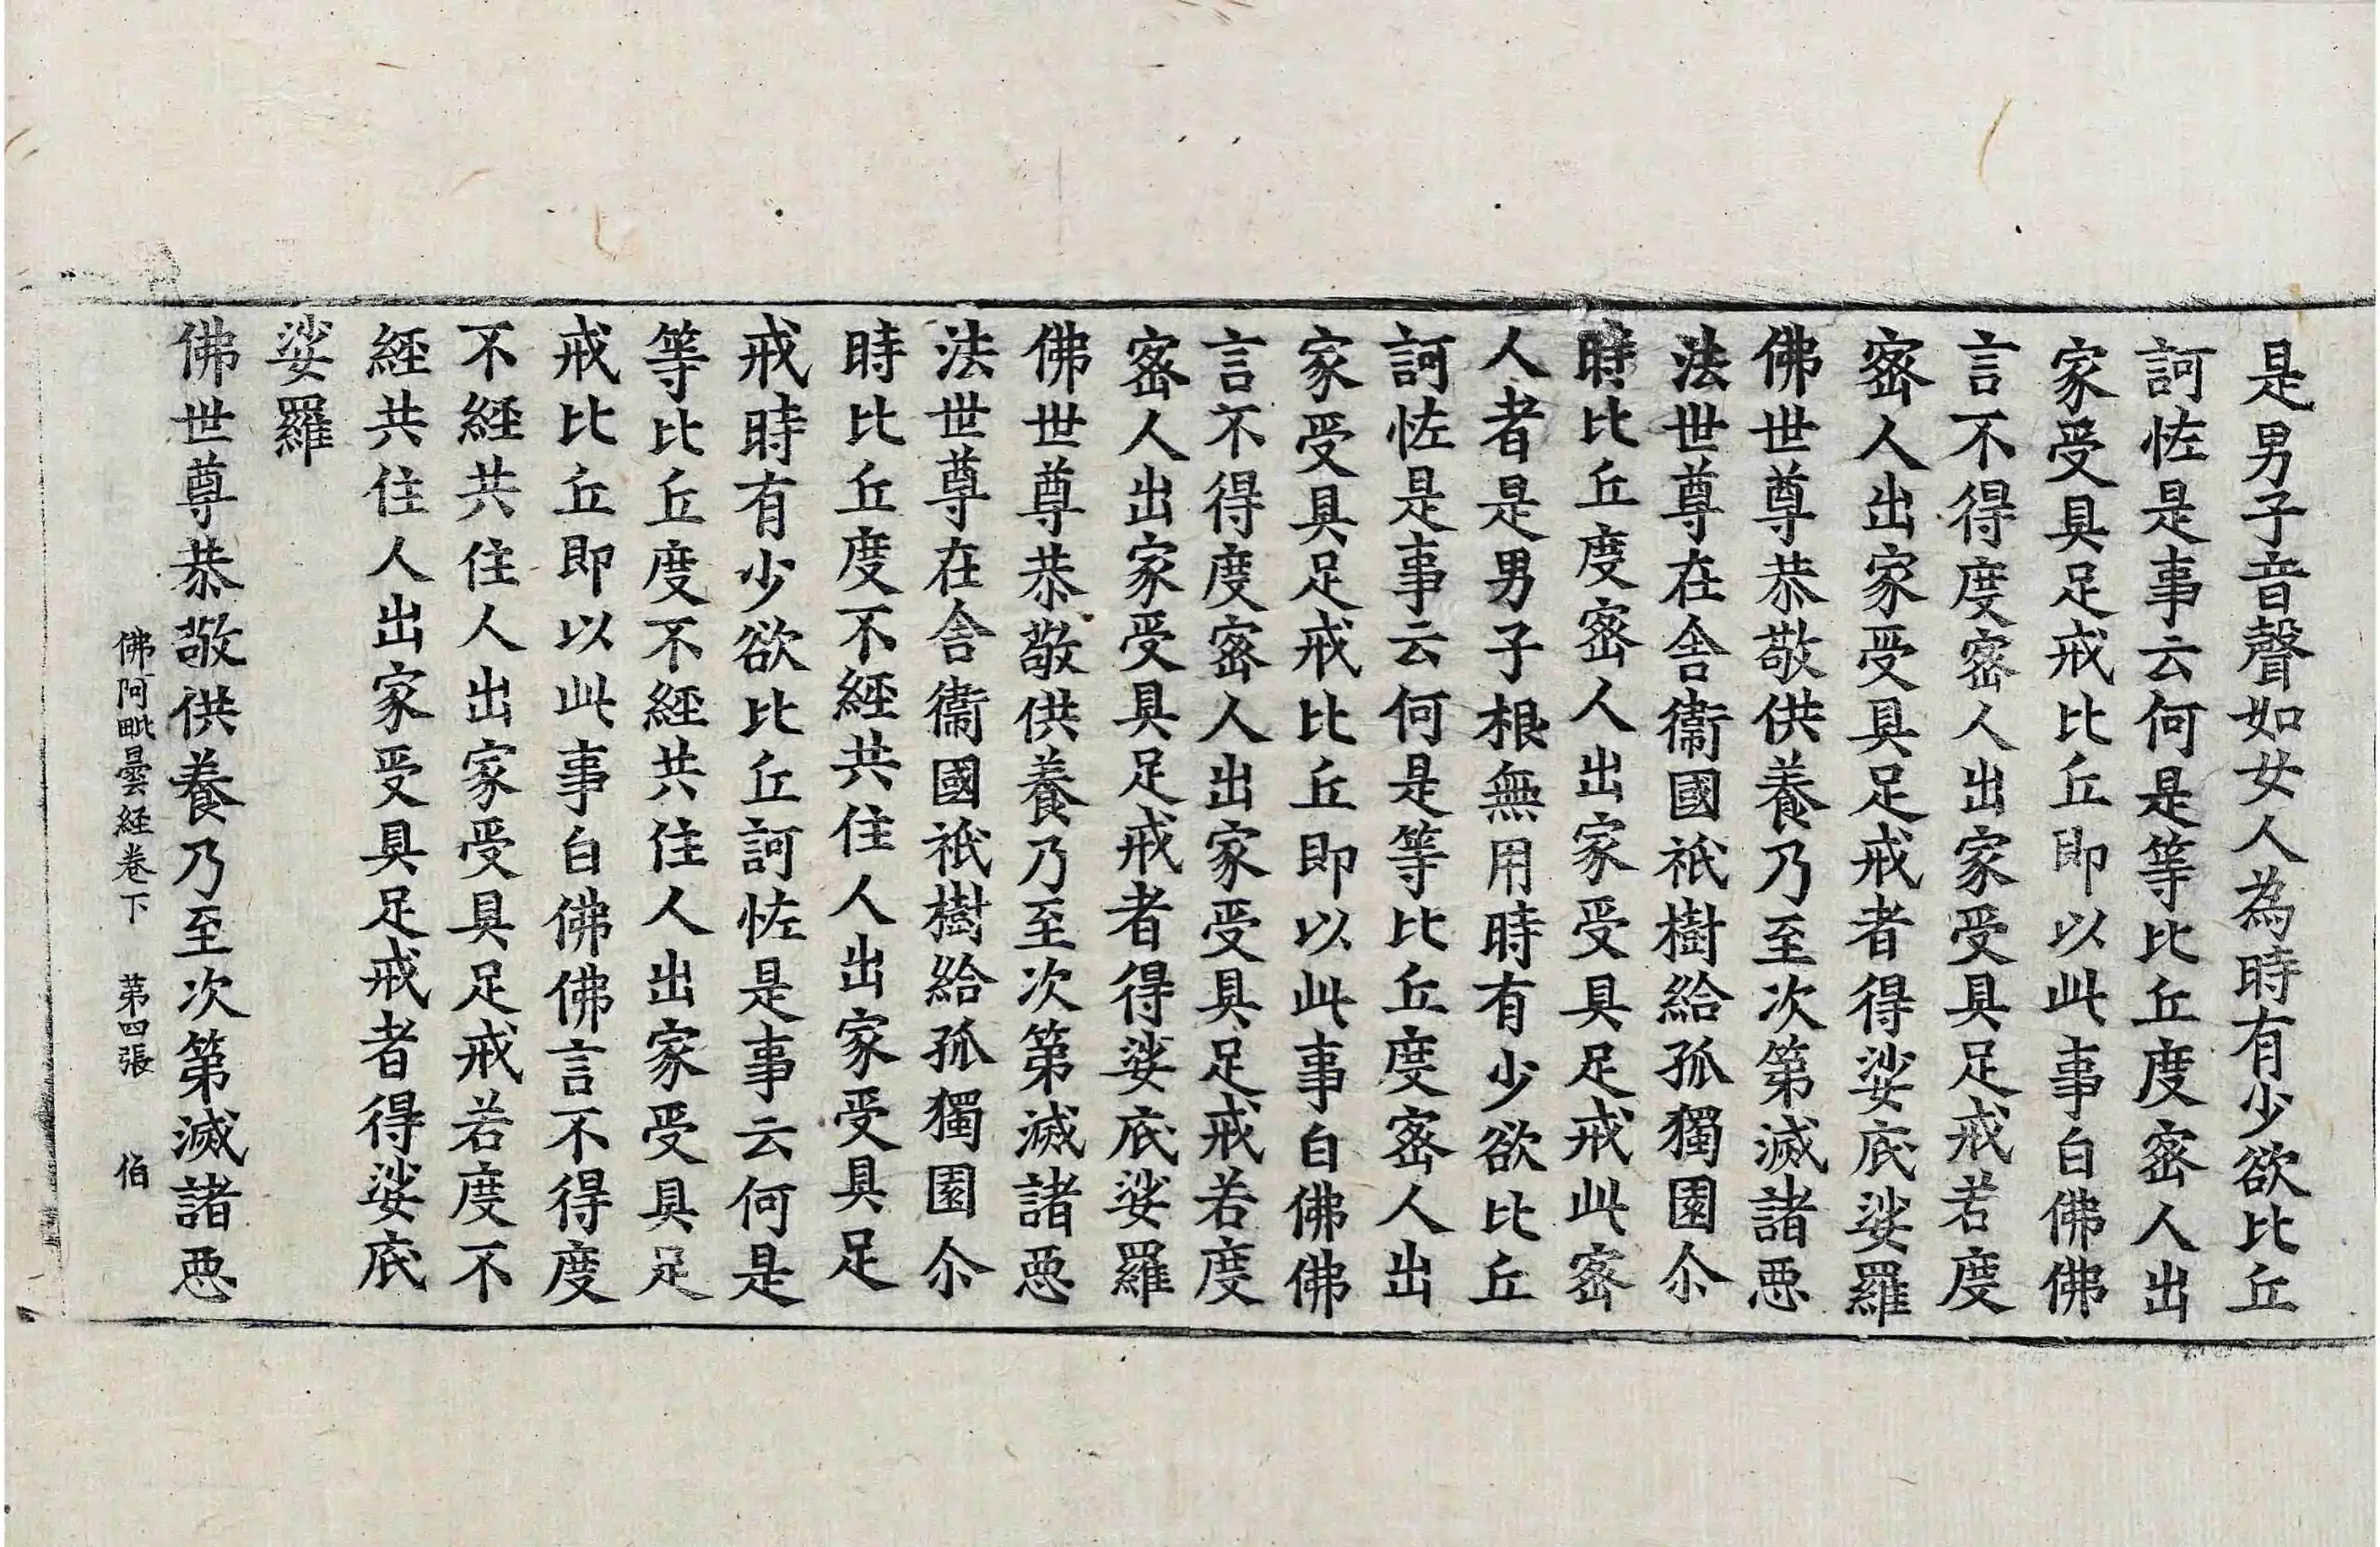 是男子音聲如女人為時有少欲比丘
訶恠是事云何是等比丘度宻人出
家受具足戒比丘即以此事白佛佛
言不得度宻人出家受具足戒若度
宻人出家受具足戒者得娑底娑羅
佛世尊恭敬供養乃至次第滅諸惡
法世尊在舎衞國祇樹給孤獨園尒
時比丘度宻人出家受具足戒此宻
人者是男子根無用時有少欲比丘
訶恠是事云何是等比丘度宻人出
家受具足戒比丘即以此事白佛佛
言不得度宻人出家受具足戒若度
宻人出家受具足戒者得娑底娑羅
佛世尊恭敬供養乃至次第滅諸惡
法世尊在舎衞國祇樹給孤獨園尒
時比丘度不經共住人出家受具足
戒時有少欲比丘訶恠是事云何是
等比丘度不經共住人出家受具足
戒比丘即以此事白佛佛言不得度
不經共住人出家受具足戒若度不
經共住人出家受具足戒者得娑底
娑羅
佛世尊恭敬供養乃至次第滅諸惡
佛阿毗曇経卷下 第四張 伯